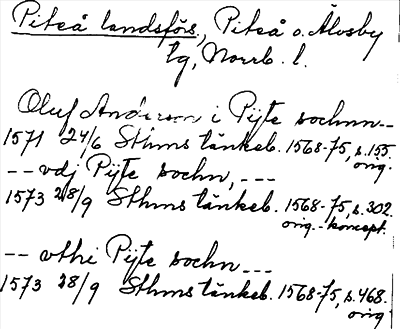 Piteå landsförs., Piteå o. Älvsby
tg, Norrb. l.
Oluf Anderson i Pijte sochnn--
1571 24/6 Sthms tänkeb. 1568-75, s. 155
orig.
-- vdj Pijte sochn, ---
1573 28/9 Sthms tänkeb. 1568-75, s. 302.
orig. - koncept.
-- vthi Pijte sochn ---
1573 28/9 Sthms tänkeb. 1568-75, s. 468.
orig